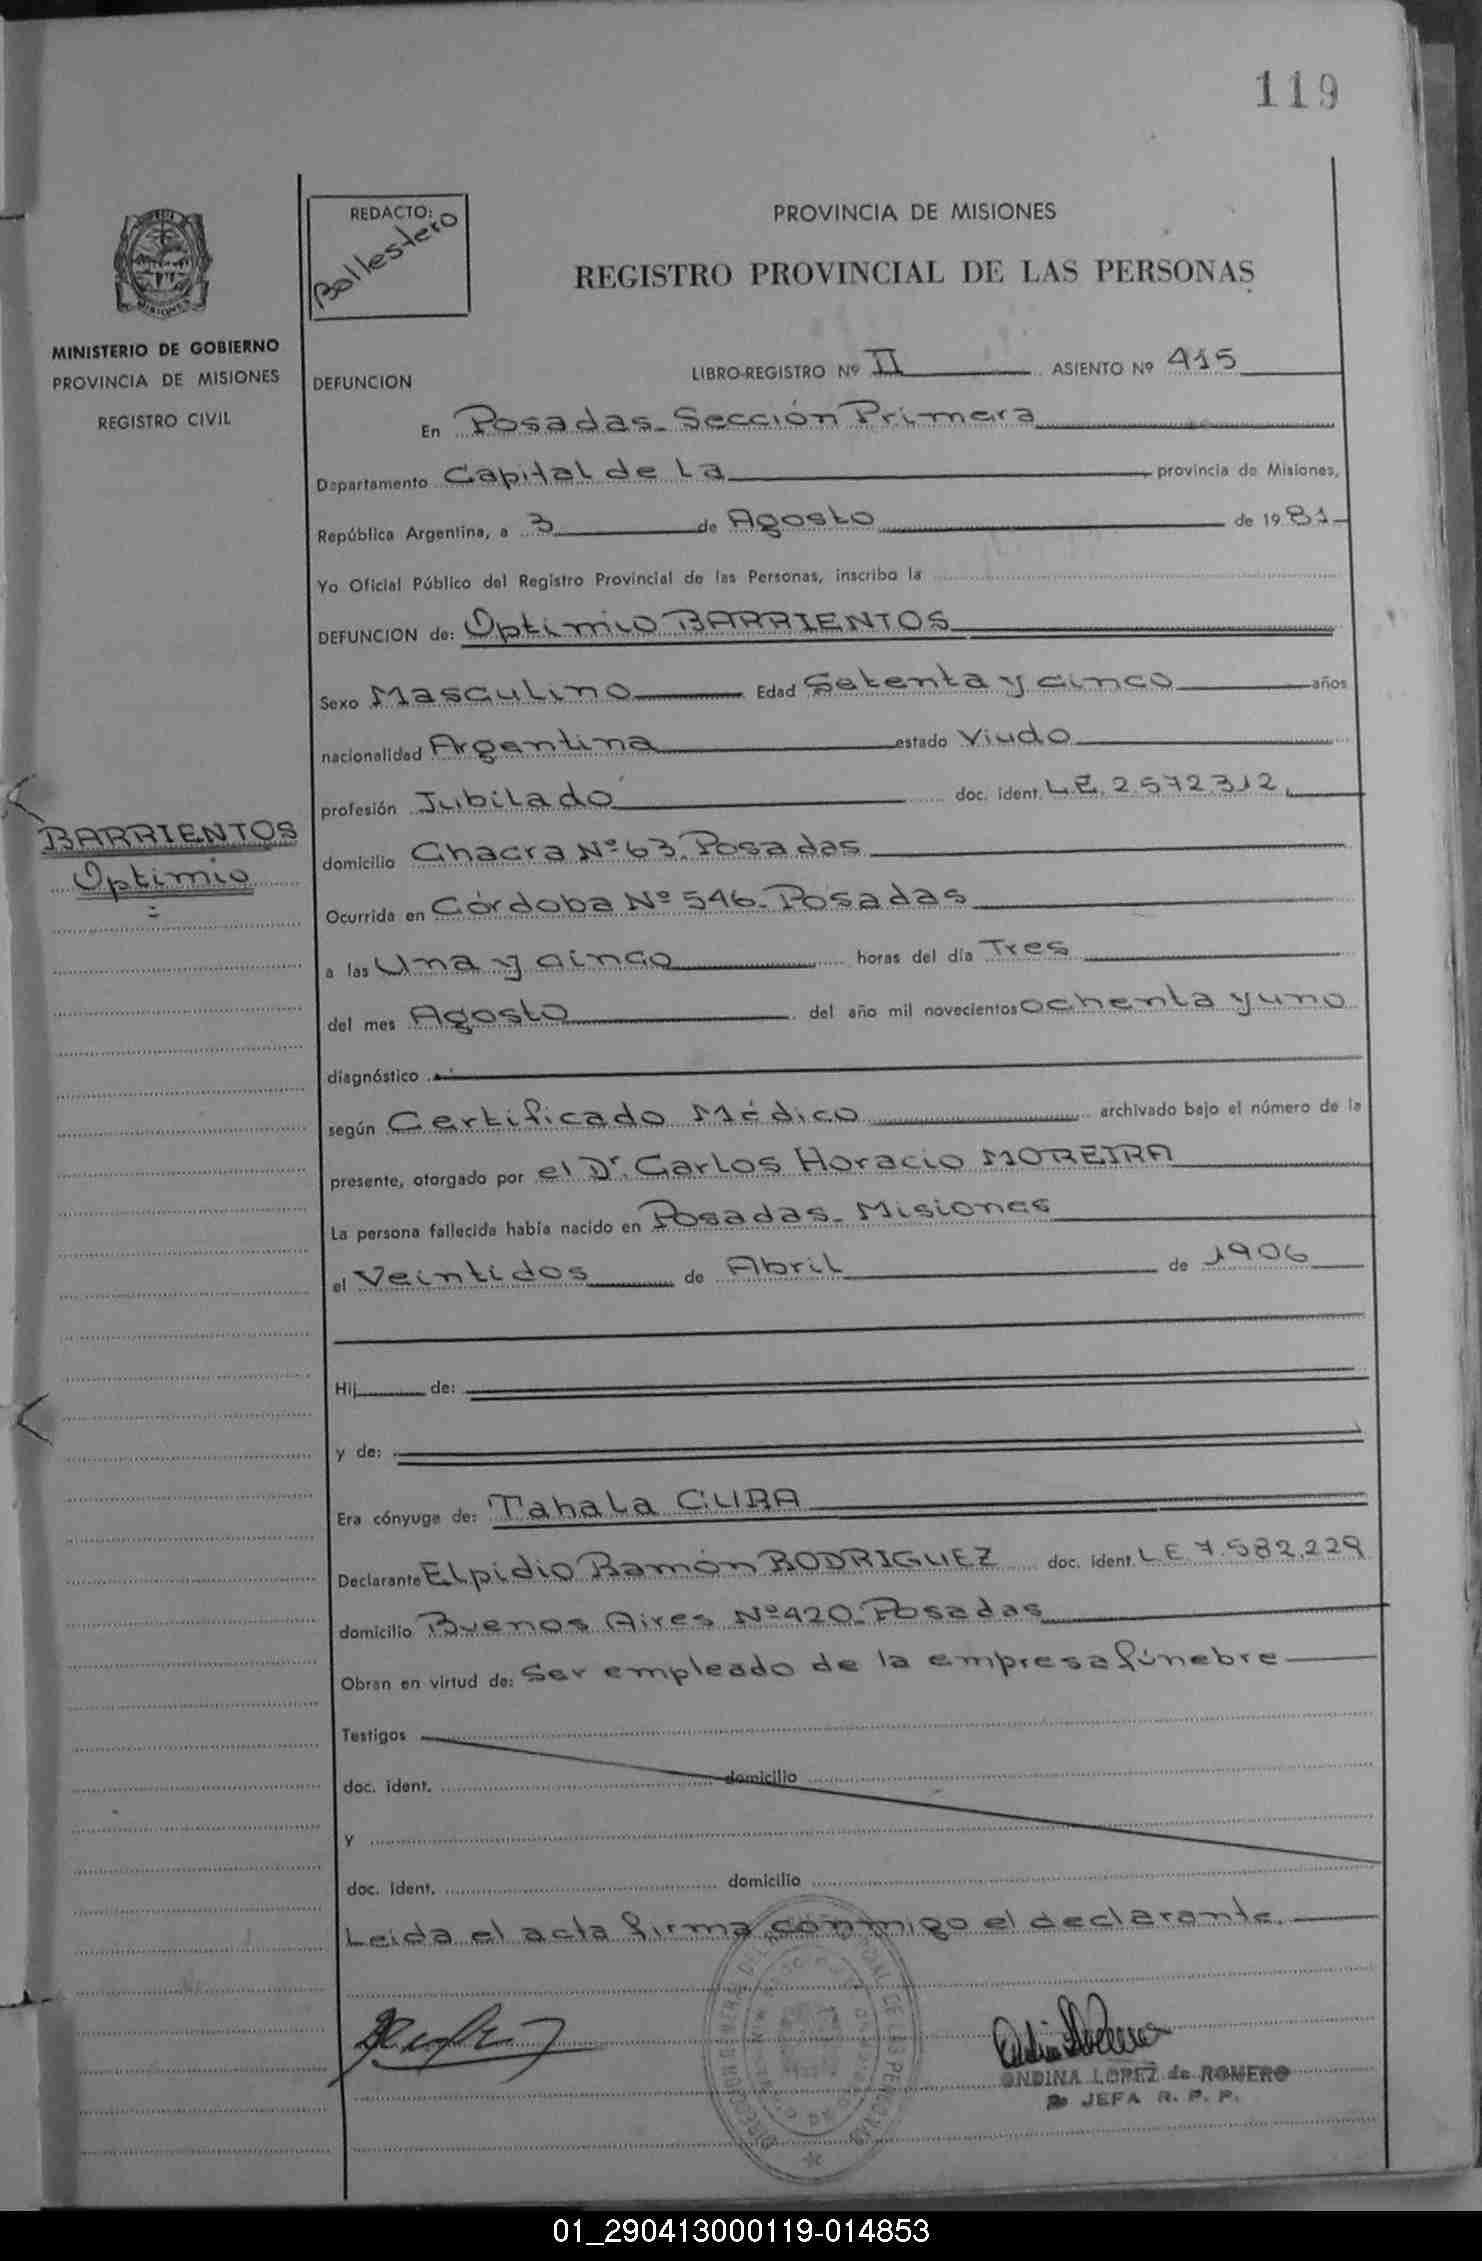 119
REDACTO:
Ballestero
PROVINCIA DE MISIONES
REGISTRO PROVINCIAL DE LAS PERSONAS
MINISTERIO DE GOBIERNO
PROVINCIA DE MISIONES
REGISTRO CIVIL
DEFUNCION
LIBRO-REGISTRO Nº II ASIENTO Nº 415
En Posadas-Sección Primera
Departamento Capital de La provincia de Misiones,
República Argentina, a 3 de Agosto de 1981
Yo Oficial Público del Registro Provincial de las Personas, inscribo la
DEFUNCION de: Optimio BARRIENTOS
Sexo Masculino Edad Setenta y cinco años
nacionalidad Argentina estado Viudo
profesión Jubilado doc. ident. L.E. 2.572.312
BARRIENTOS
Optimio
domicilio Chacra Nº 63. Posadas
Ocurrida en Córdoba Nº 546-Posadas
a las Una y cinco horas del día Tres
del mes Agosto del año mil novecientos ochenta y uno
diagnóstico
según Certificado Médico archivado bajo el número de la
presente, otorgado por el Dr. Carlos Horacio MOREIRA
La persona fallecida había nacido en Posadas-Misiones
el Veintidos de Abril de 1906
Hij de:
y de:
Era cónyuge de: Tahala CURA
Declarante Elpidio Ramón RODRIGUEZ doc. ident. L.E. 7.582.229
domicilio Buenos Aires Nº 420-Posadas
Obran en virtud de: Ser empleado de la empresa fúnebre
Testigos
doc. ident. domicilio
y
doc. ident. domicilio
Leida el acta firma conmigo el declarante.
ONDINA LOPEZ de ROMERO
JEFA R. P. P.
01_290413000119-014853